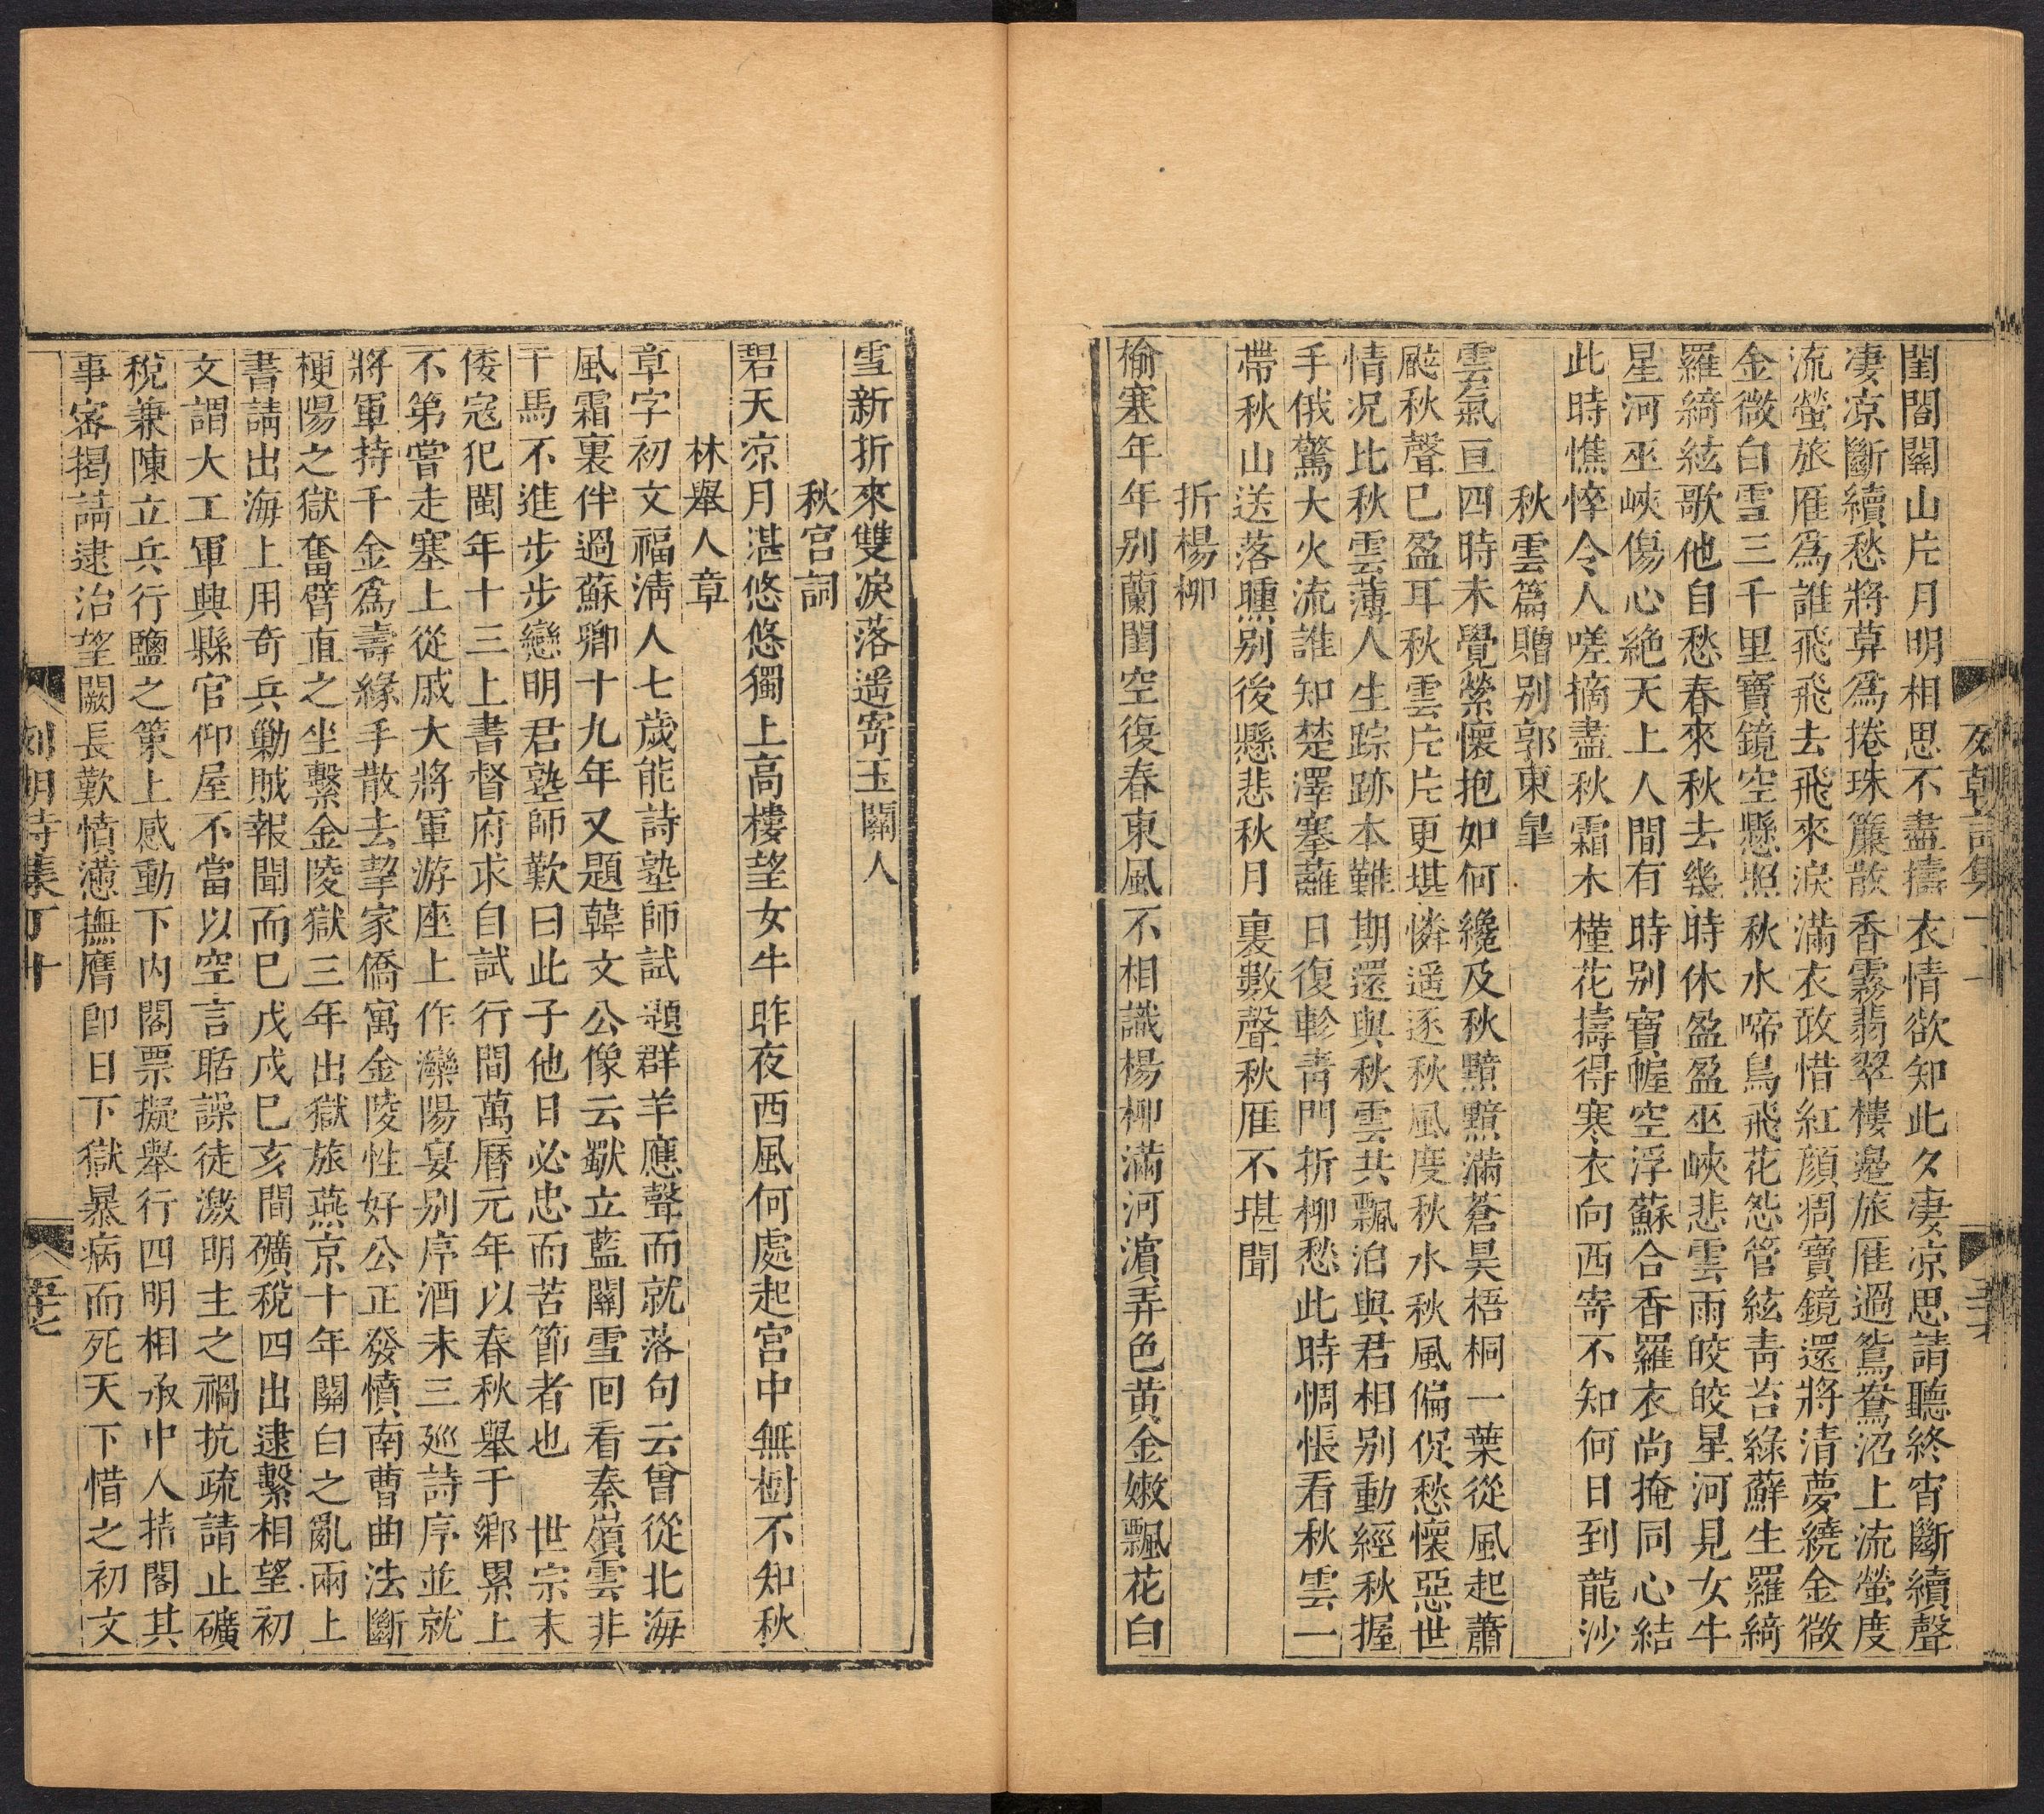 閨閤關山片月明相思不盡擣衣情欲知此夕凄凉思請聽終宵斷續聲
凄凉斷續愁將草爲捲珠簾散香霧翡翠樓邊旅雁過鴛鴦沼上流螢度
流螢旅雁爲誰飛飛去飛來淚滿衣敢惜紅顔凋寶鏡還將清夢繞金微
金微白雪三千里寶鏡空懸照秋水啼鳥飛花怨管絃靑苔綠蘚生羅綺
羅綺絃歌他自愁春來秋去幾時休盈盈巫峽悲雲雨皎皎星河見女牛
星河巫峽傷心絶天上人間有時别寶幄空浮蘇合香羅衣尚掩同心結
此時憔悴令人嗟摘盡秋霜木槿花擣得寒衣向西寄不知何日到龍沙
秋雲篇贈别郭東皐
雲氣亘四時未覺縈懷抱如何纔及秋黯黯滿蒼昊梧桐一葉從風起蕭
颼秋聲已盈耳秋雲片片更堪憐遥逐秋風度秋水秋風偏促愁懷惡世
情况比秋雲薄人生踪跡本難期還與秋雲共飄泊與君相别動經秋握
手俄驚大火流誰知楚澤搴蘺日復軫靑門折柳愁此時惆悵看秋雲一
帶秋山送落曛别後懸悲秋月裏數聲秋雁不堪聞
折楊柳
榆塞年年别蘭閨空復春東風不相識楊柳滿河濵弄色黄金嫩飄花白
雪新折來雙淚落遥寄玉關人
秋宫詞
碧天凉月湛悠悠獨上高樓望女牛昨夜西風何處起宫中無樹不知秋
林舉人章
章字初文福淸人七歲能詩塾師試題群羊應聲而就落句云曾從北海
風霜裏伴過蘇卿十九年又題韓文公像云獸立藍關雪囘看秦嶺雲非
干馬不進步步戀明君塾師歎曰此子他日必忠而苦節者也 世宗末
倭寇犯閩年十三上書督府求自試行間萬曆元年以春秋舉于鄉累上
不第嘗走塞上從戚大將軍游座上作灤陽宴别序酒未三廵詩序並就
將軍持千金爲壽緣手散去挈家僑寓金陵性好公正發憤南曹曲法斷
梗陽之獄奮臂直之坐繫金陵獄三年出獄旅燕京十年關白之亂兩上
書請出海上用奇兵勦賊報聞而已戊戌已亥間礦稅四出逮繫相望初
文謂大工軍興縣官仰屋不當以空言聒譟徒激明主之禍抗疏請止礦
稅兼陳立兵行鹽之策上感動下内閣票擬舉行四明相承中人掿閣其
事密揭請逮治望闕長歎憤懣撫膺卽日下獄暴病而死天下惜之初文
列朝詩集丁十